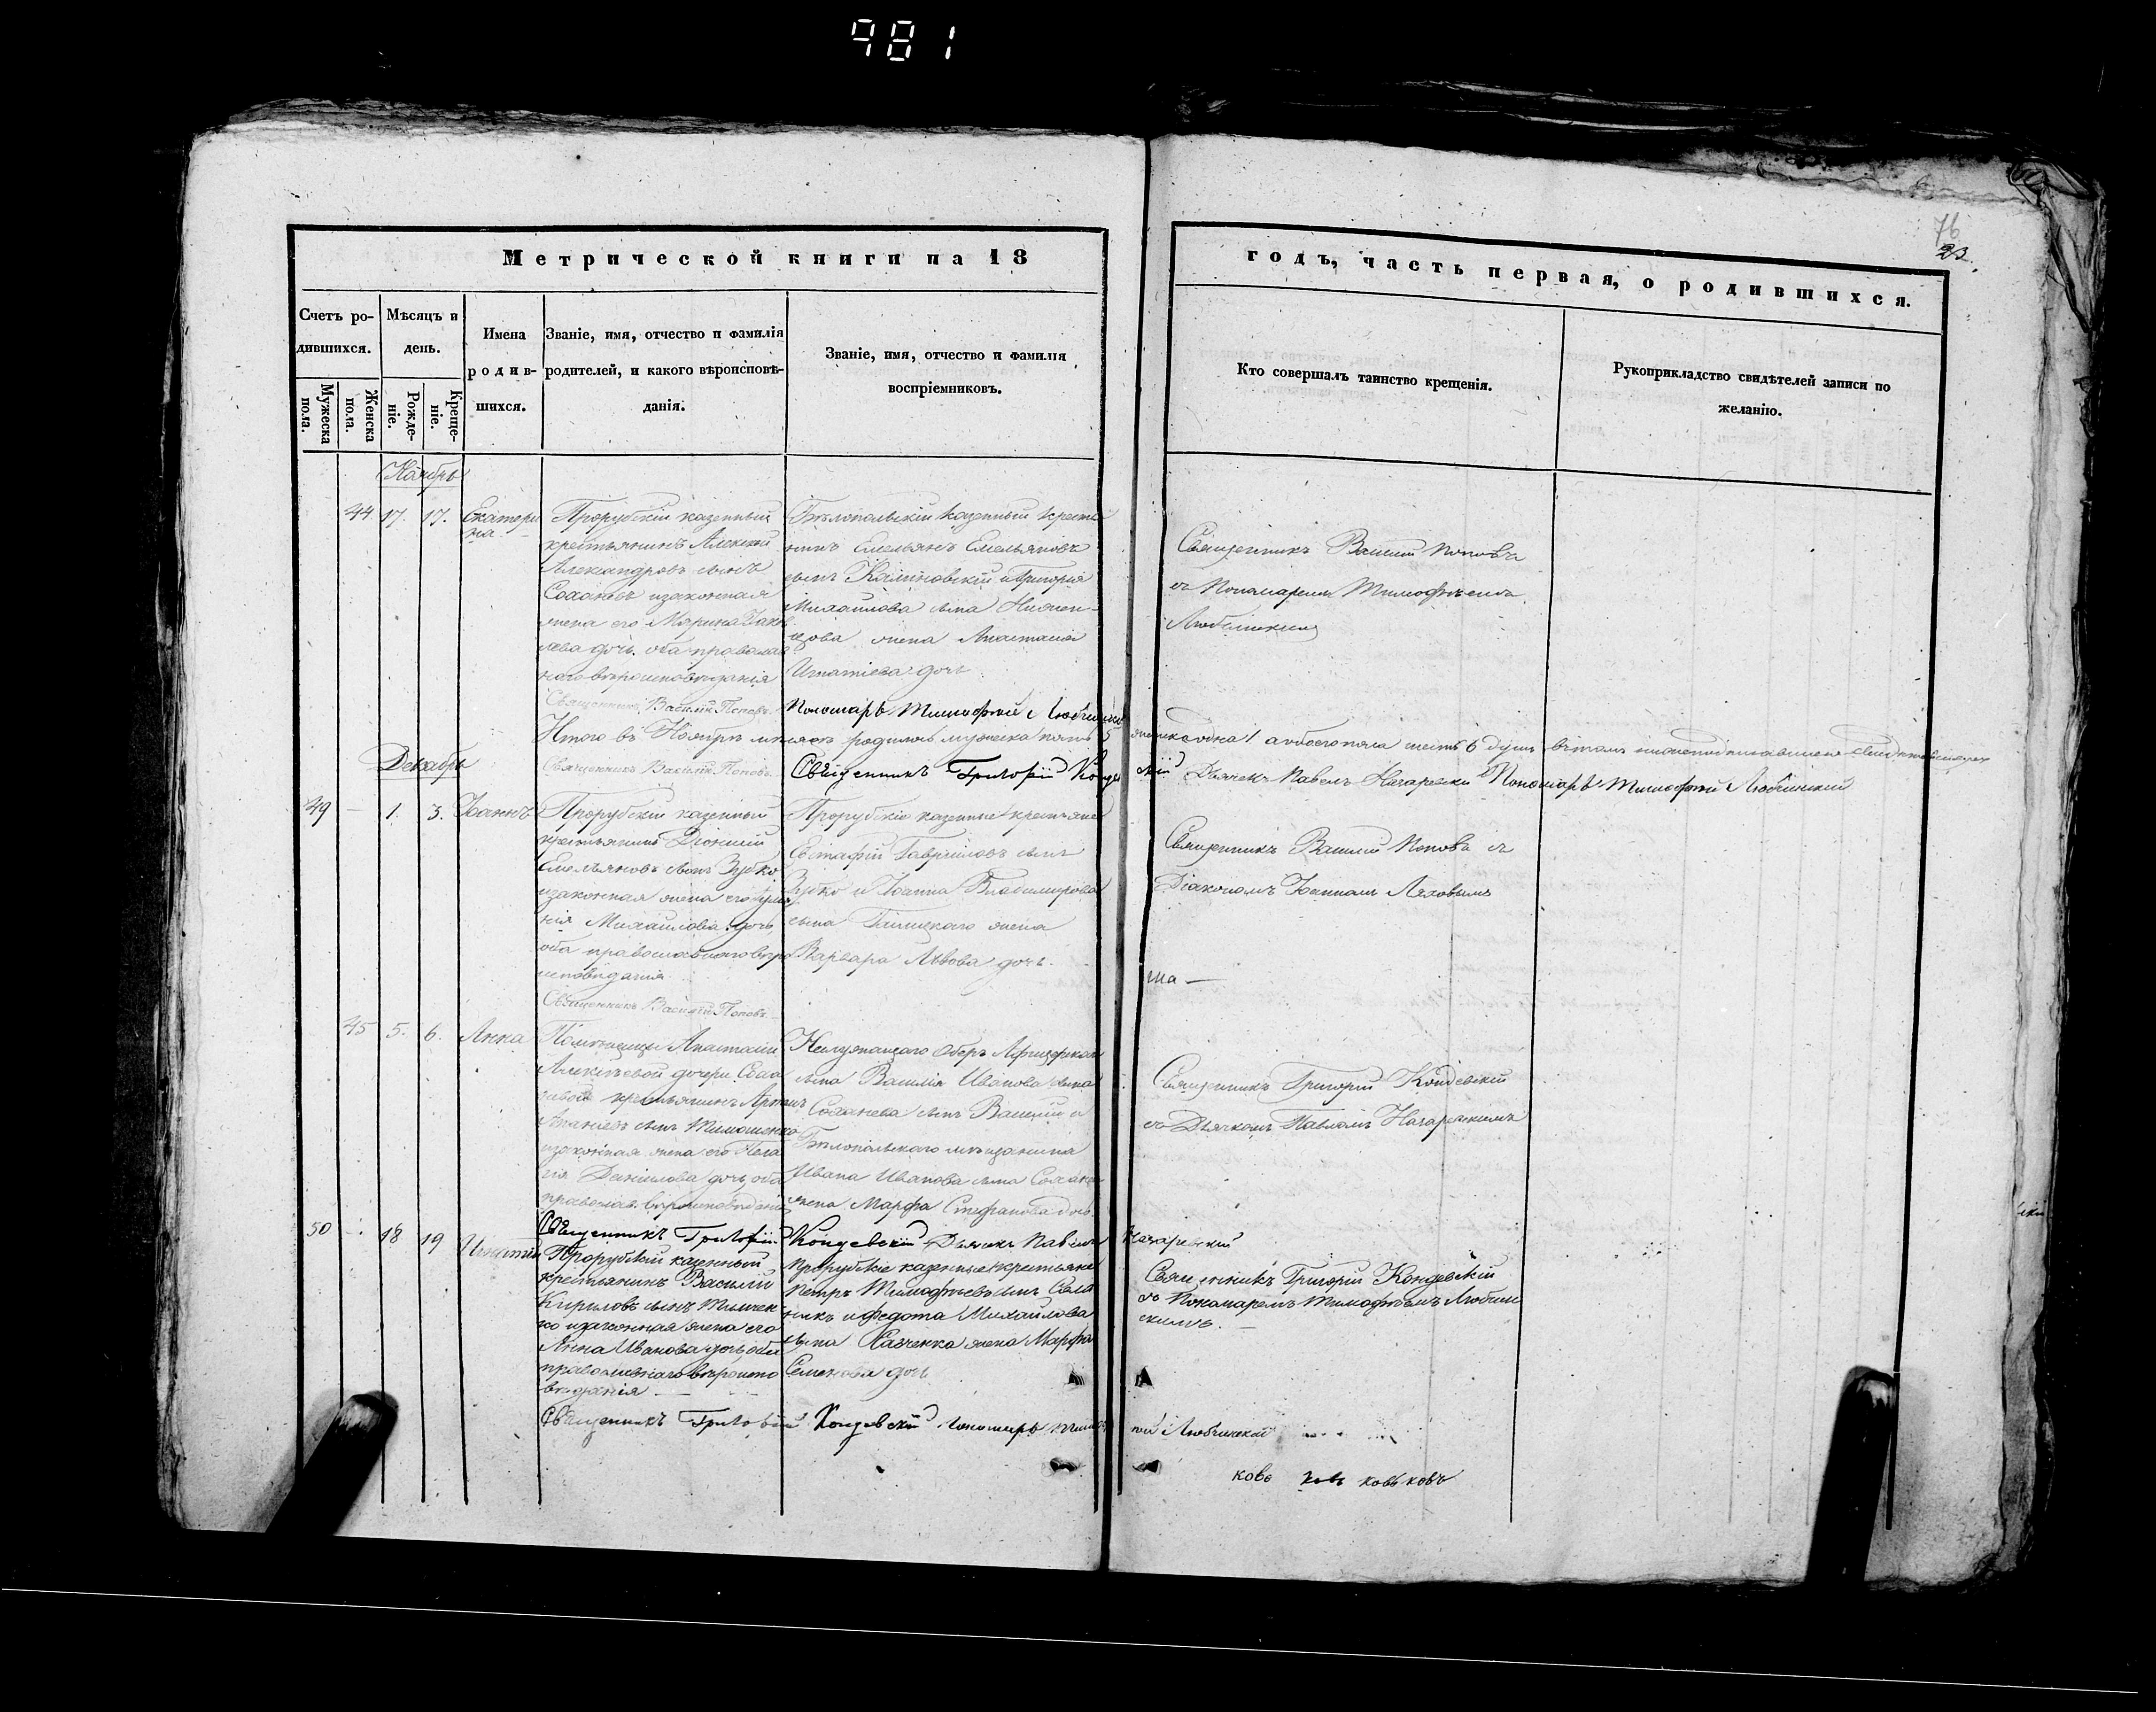 981
76
23.
Метрической книги на 18
годъ, часть первая, о родившихся.
Счетъ ро-
дившихся.
Мужеска
пола.
Женска
пола.
Мѣсяцъ и
день.
Рожде-
ніе.
Креще-
ніе.
Имена
родив-
шихся.
Званіе, имя, отчество и фамилія
родителей, и какого вѣроисповѣ-
данія.
Званіе, имя, отчество и фамилія
воспріемниковъ.
Кто совершалъ таинство крещенія.
Рукоприкладство свидѣтелей записи по
желанію.
Ноябрь
44 17. 17. Екатери
на
Прорубскій казенный
крестьянинъ Алексѣй
Александровъ сынъ
Сохань изаконная
жена его Марина Яков
лева дочь. оба православ
наго вѣроисповѣданія
Бѣлопольскій казенный крестья
нинъ Емельянъ Емельяновъ
сынъ Калиновскій и Григорія
Михайлова сына
жена Анастасія
Игнатіева дочь
Священникъ Василій Поповъ
съ Пономаремъ Тимофѣемъ
Любинскимъ
Священникъ Василій Поповъ. Пономарь Тимофѣй Любинскій
Итого въ Ноябрѣ мѣсяцѣ родилось мужеска пять 5 женска одна 1 а обоего пола шесть 6 душъ
Декабрь
Священникъ Василій Поповъ. Священникъ Григорій Кондевскій Дьячекъ Павелъ Назаревскій Пономарь Тимофѣй Любинскій
49 – 1. 3. Іоаннъ
Прорубскій казенный
крестьянинъ Діонисій
Емельяновъ сынъ Зубко
изаконная жена его
нія Михайлова дочь,
оба православнаго вѣро
исповѣданія
Прорубскіе казенные крестьяне
Евстафій Гавриловъ сынъ
Зубко и Іоанна Владимирова
сына жена
Варвара Львова дочь.
Священникъ Василій Поповъ съ
Діакономъ Іоанномъ Ляховымъ
ша —
Священникъ Василій Поповъ.
45 5. 6. Анна
Помѣщицы Анастасіи
Алексѣевой дочери
крестьянинъ Артемъ
Ананіевъ сынъ Тимошенко
изаконная жена его Пела
гія Даніилова дочь, оба
православ. вѣроисповѣданія
Неслужащаго Оберъ Афицерскаго
сына Василія Иванова сына
Соханева сынъ Василій и
Бѣлопольскаго мѣщанина
Ивана Иванова сына
жена Марфа Стефанова дочь
Священникъ Григорій Кондевскій
съ Дьячкомъ Павломъ Назаревскимъ
Священникъ Григорій Кондевскій Дьячекъ Павелъ Назаревскій
50 18 19 Игнатій
Прорубскій казенный
крестьянинъ Василій
Кириловъ сынъ Тимчен
ко изаконная жена его
Анна Иванова дочь, оба
православнаго вѣроиспо
вѣданія
Прорубскіе казенные крестьяне
Петръ Тимофѣевъ сынъ
никъ и Федота Михайлова
сына жена Марфа
Семенова дочь
Священникъ Григорій Кондевскій
съ Пономаремъ Тимофѣемъ Любин
скимъ.
Священникъ Григорій Кондевскій Пономарь Тимофѣй Любинскій
ковъ ковъ ковъ ковъ